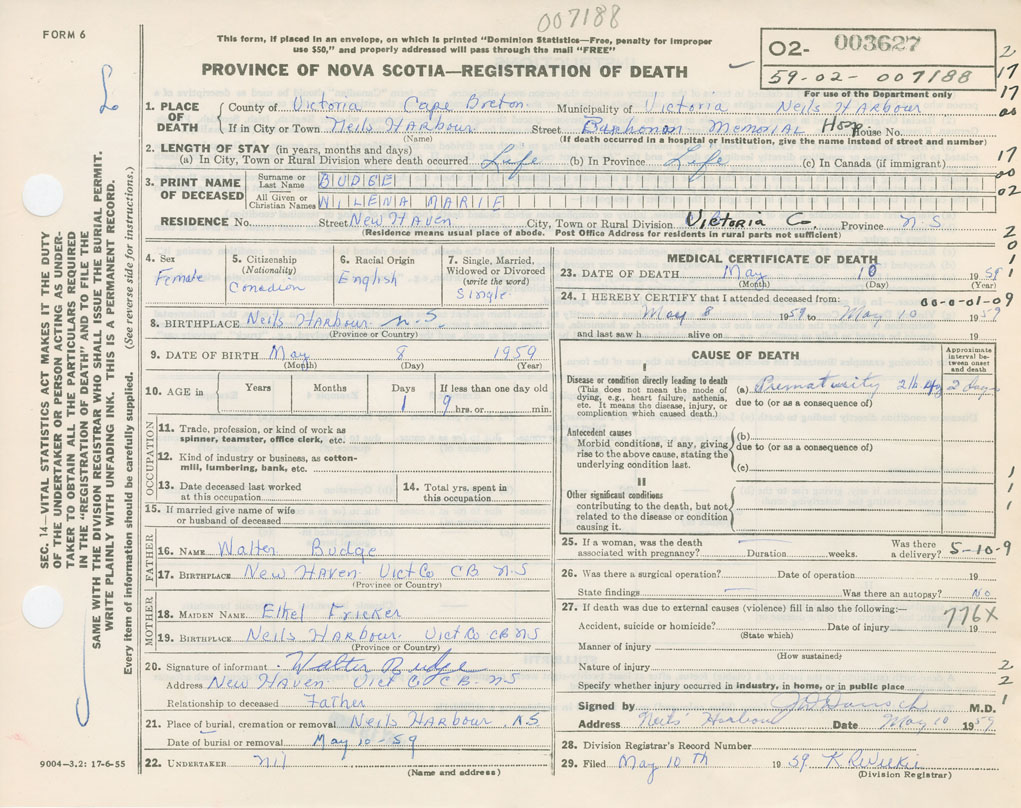 007188
FORM 6
This form, if placed in an envelope, on which is printed "Dominion Statistics—Free, penalty for improper
use $50," and properly addressed will pass through the mail "FREE"
O2- 003627
59-02-007188
For use of the Department only
PROVINCE OF NOVA SCOTIA—REGISTRATION OF DEATH
2
17
17
00
17
00
02
2
0
1
1
SEC. 14—VITAL STATISTICS ACT MAKES IT THE DUTY
OF THE UNDERTAKER OR PERSON ACTING AS UNDER-
TAKER TO OBTAIN ALL THE PARTICULARS REQUIRED
IN THE "REGISTRATION OF DEATH" AND TO FILE THE
SAME WITH THE DIVISION REGISTRAR WHO SHALL ISSUE THE BURIAL PERMIT.
WRITE PLAINLY WITH UNFADING INK. THIS IS A PERMANENT RECORD.
Every item of information should be carefully supplied. (See reverse side for instructions.)
1. PLACE OF DEATH
County of Victoria Cape Breton Municipality of Victoria Neils Harbour
If in City or Town Neils Harbour Street Memorial Hosp House No.
(Name) (If death occurred in a hospital or institution, give the name instead of street and number)
2. LENGTH OF STAY (in years, months and days)
(a) In City, Town or Rural Division where death occurred Life (b) In Province Life (c) In Canada (if immigrant)
3. PRINT NAME OF DECEASED
Surname or Last Name BUDGE
All Given or Christian Names NILENA MARIE
RESIDENCE No. Street New Haven City, Town or Rural Division Victoria Co Province N.S
(Residence means usual place of abode. Post Office Address for residents in rural parts not sufficient)
4. Sex Female
5. Citizenship (Nationality) Canadian
6. Racial Origin English
7. Single, Married, Widowed or Divorced (write the word) Single
8. BIRTHPLACE Neils Harbour N.S.
(Province or Country)
9. DATE OF BIRTH May 8 1959
(Month) (Day) (Year)
10. AGE in Years Months Days 1 If less than one day old 9 hrs. or min.
OCCUPATION
11. Trade, profession, or kind of work as spinner, teamster, office clerk, etc.
12. Kind of industry or business, as cotton-mill, lumbering, bank, etc.
13. Date deceased last worked at this occupation
14. Total yrs. spent in this occupation
15. If married give name of wife or husband of deceased
FATHER
16. NAME Walter Budge
17. BIRTHPLACE New Haven Vict Co CB N.S
(Province or Country)
MOTHER
18. MAIDEN NAME Ethel Fricker
19. BIRTHPLACE Neils Harbour Vict Co CB NS
(Province or Country)
20. Signature of informant Walter Budge
Address New Haven Vict Co CB. NS
Relationship to deceased Father
21. Place of burial, cremation or removal Neils Harbour N.S
Date of burial or removal May 10-59
22. UNDERTAKER nil
(Name and address)
9004—3.2: 17-6-55
MEDICAL CERTIFICATE OF DEATH
23. DATE OF DEATH May 10 1959
(Month) (Day) (Year)
24. I HEREBY CERTIFY that I attended deceased from:
00-0-01-09
May 8 1959 to May 10 1959
and last saw h alive on 19
CAUSE OF DEATH
Approximate interval between onset and death
I
Disease or condition directly leading to death
(This does not mean the mode of dying, e.g., heart failure, asthenia, etc. It means the disease, injury, or complication which caused death.)
(a) Prematurity 2 lb 2 days
due to (or as a consequence of)
Antecedent causes
Morbid conditions, if any, giving rise to the above cause, stating the underlying condition last.
(b)
due to (or as a consequence of)
(c)
II
Other significant conditions
contributing to the death, but not related to the disease or condition causing it.
1
1
1
25. If a woman, was the death associated with pregnancy? — Duration weeks. Was there a delivery? 5-10-9
26. Was there a surgical operation? Date of operation 19
State findings — Was there an autopsy? No
27. If death was due to external causes (violence) fill in also the following:—
776X
Accident, suicide or homicide? Date of injury 19
(State which)
Manner of injury
(How sustained)
Nature of injury
2
Specify whether injury occurred in industry, in home, or in public place
2
Signed by M.D.
1
Address Neils Harbour Date May 10 1959
28. Division Registrar's Record Number
29. Filed May 10 th 1959
(Division Registrar)